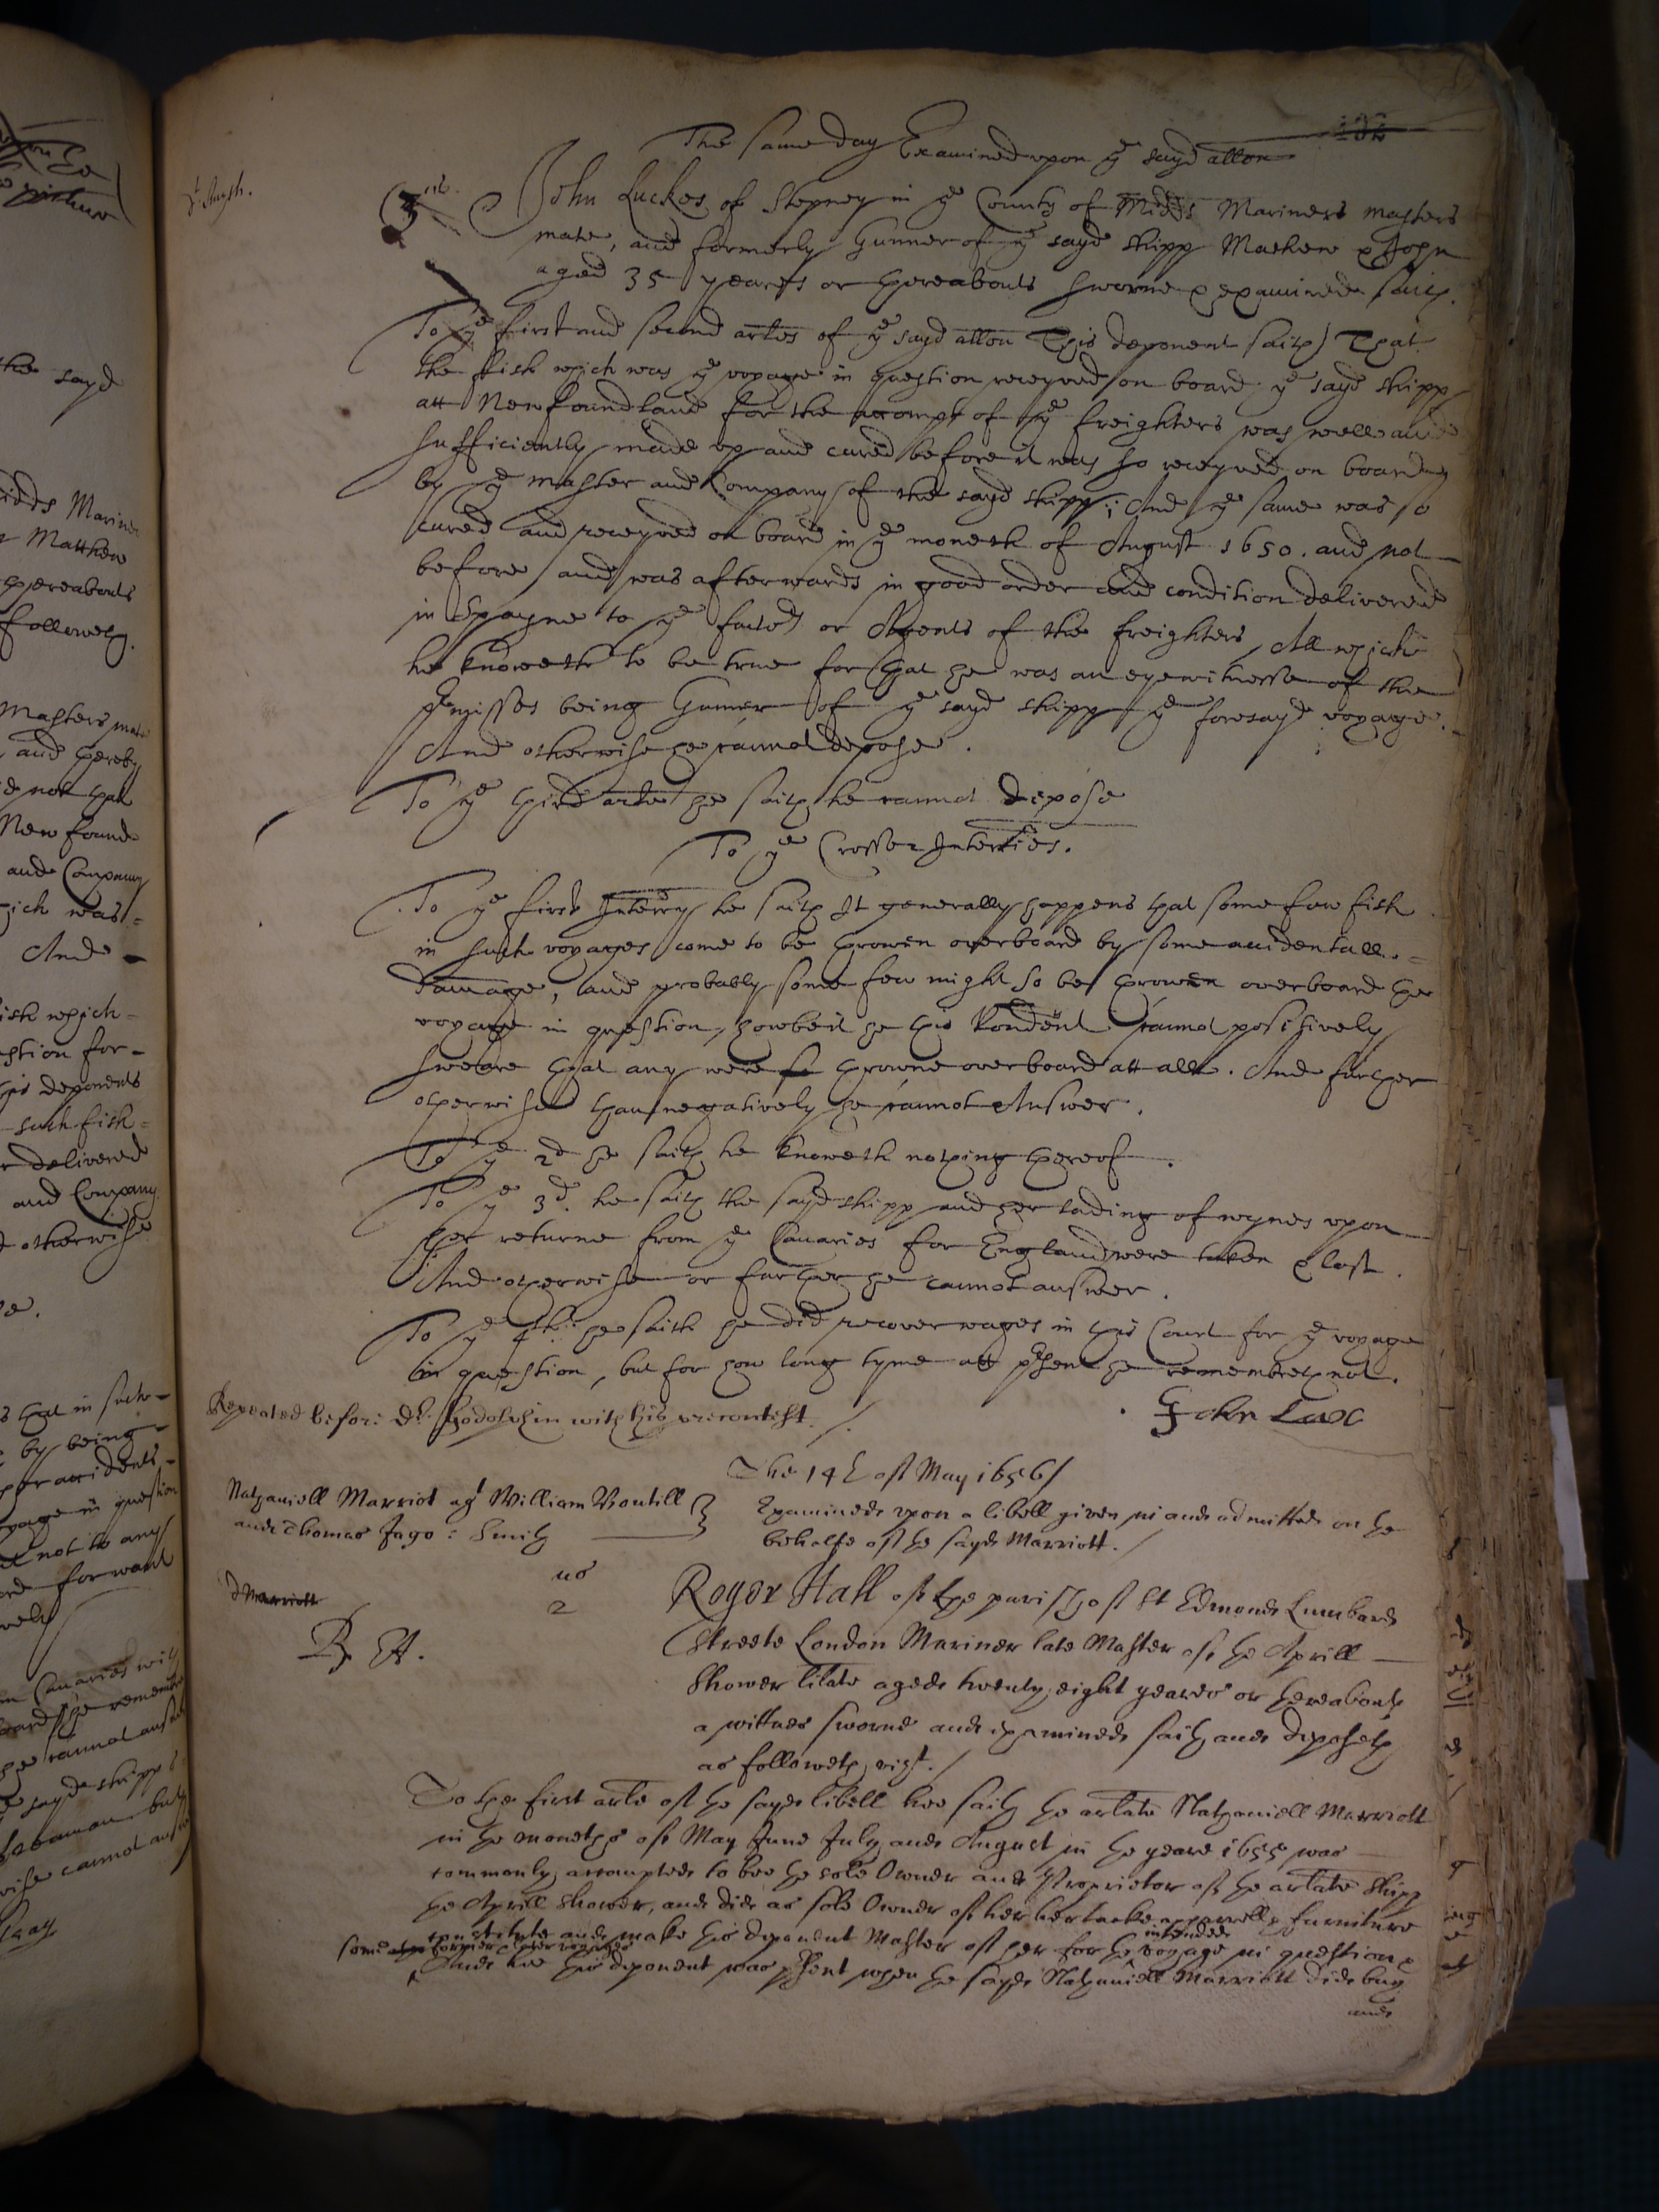 The same day Examined upon ye sayd allon
132
dt. Smyth.
3us.
John Luckes of Stepney in ye County of Midds Mariners masters
mate, and formerly Gunner of ye sayd shipp Mathew & John
aged 35 yeares or thereabouts sworne & examined saith.
To ye first and second artes of ye sayd allon This deponent saith That
the ffish which was ye voyage in question receyved on board ye sayd shipp
att Newfoundland for the accompt of ye freighters was well and
sufficiently made up and cured before it was so receyved on board
by ye Master and Company of the sayd shipp; And ye same was so
cured and receyved on board in ye moneth of August 1650. and not
before and was afterwards in good order and condition delivered
in Spayne to ye factors or Agents of the freighters, All which
he knoweth to be true for that he was an eyewitnesse of the
premisses being Gunner of ye sayd shipp ye foresayd voyage.
And otherwise he cannot depose.
To ye third arte he saith he cannot depose
To ye Crosse Interries.
To ye first Interry he saith It generally happens that some few fish
in such voyages come to be throwen overboard by some accidentall
damage, and probably some few might so be throwen overboard the
voyage in question, howbeit he this Rondent cannot positively
sweare that any were throwne overboard att all. And further
otherwise than negatively he cannot Answer.
To ye 2d he saith he knoweth nothing thereof.
To ye 3d. he saith the sayd shipp and her lading of wynes upon
her returne from ye Canaries for England were taken & lost.
And otherwise or further he cannot answer.
To ye 4th he saith he did recover wages in this Court for ye voyage
in question, but for how long tyme att present he remembreth not.
Repeated before Dr. Godolphin with his precontest.
John Luce
The 14th of May 1656
Nathaniell Marriot agt William
and Thomas Jago: Smith
Examined upon a libell given in and admitted on the
behalfe of the sayd Marriott.
us
2
R. H.
Roger Hall of the parish of St Edmonds Lumbard
Streete London Mariner late Master of the Aprill
Shower libate aged twenty eight yeares or thereabouts
a wittnes sworne and examined saith and deposeth
as followeth, vizt.
To the first arte of the sayd libell hee saith the artate Nathaniell Marriott
in the moneths of May June July and August in the yeare 1655 was
commonly accompted to bee the sole Owner and Proprietor of the artate shipp
the Aprill Shower, and did as sole Owner of her her tacke apparrell & furniture
constitute and make this deponent Master of her for the intended voyage in question
some former &
And hee this deponent was present when the sayd Nathaniell Marriott did buy
and